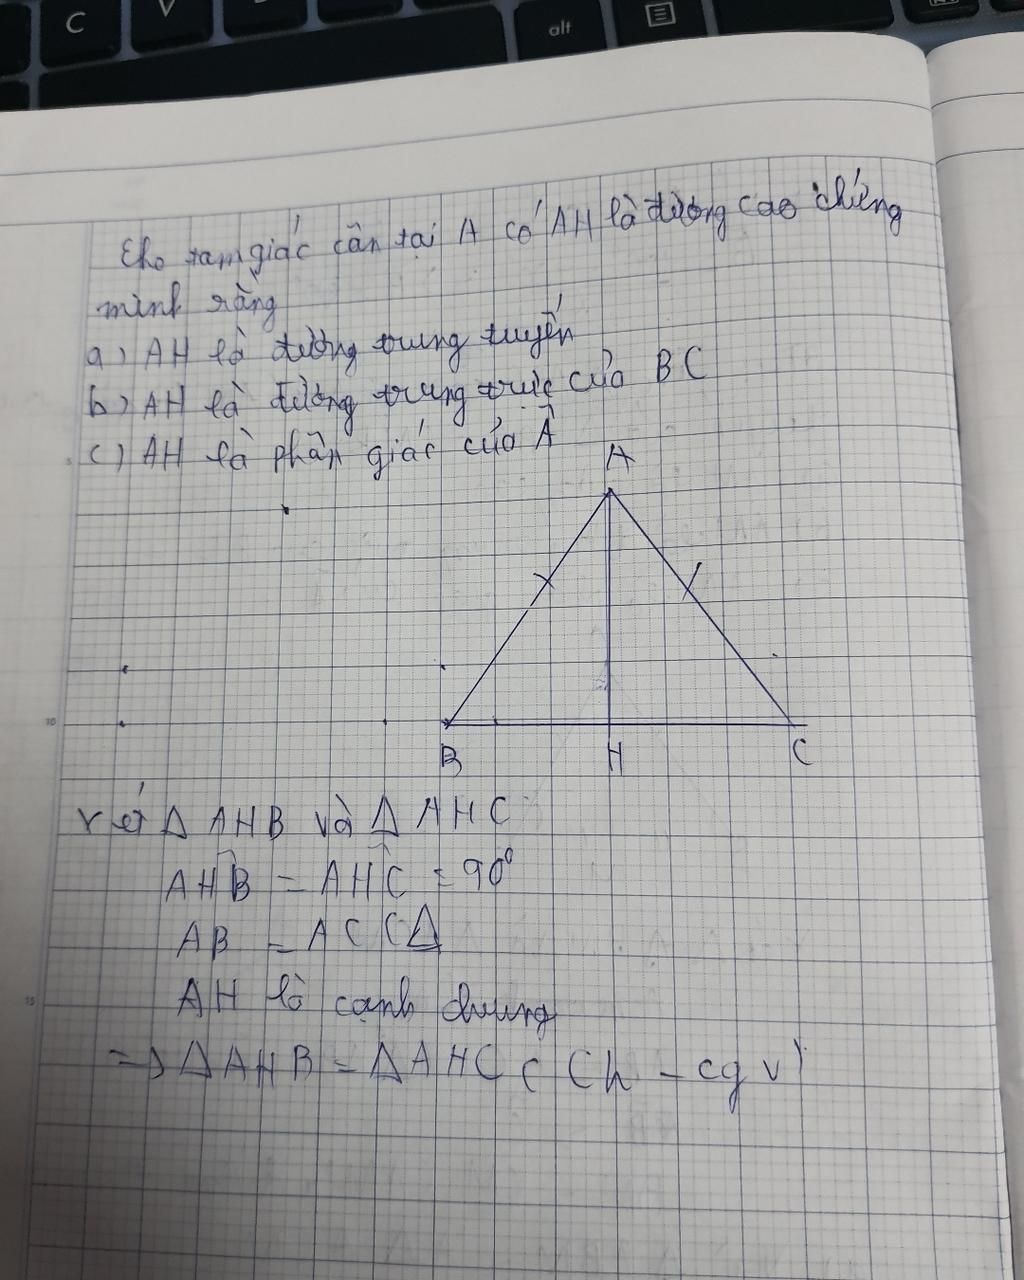 C
V
alt
Cho tam giác cân tại A có AH là đường cao chứng
minh rằng
a) AH là đường trung tuyến
b) AH là đường trung trực của BC
c) AH là phân giác của Â
A
B H C
10
Xét Δ AHB và Δ AHC
AHB = AHC = 90°
AB = AC (Δ
15
AH là cạnh chung
=> Δ AHB = Δ AHC (Ch - cgv)